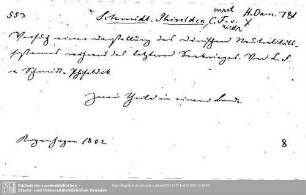 553 Schmidt-Phiseldek, C. F. v. H. Dan. 781
Versuch einer Darstellung des dänischen Neutralitäts-
systems während des letztern Seekrieges. Von C. F.
v. Schmidt-Phiseldek
Zwei Theile in einem Bande
Kopenhagen 1802 8
Sächsische Landesbibliothek -
Staats- und Universitätsbibliothek Dresden